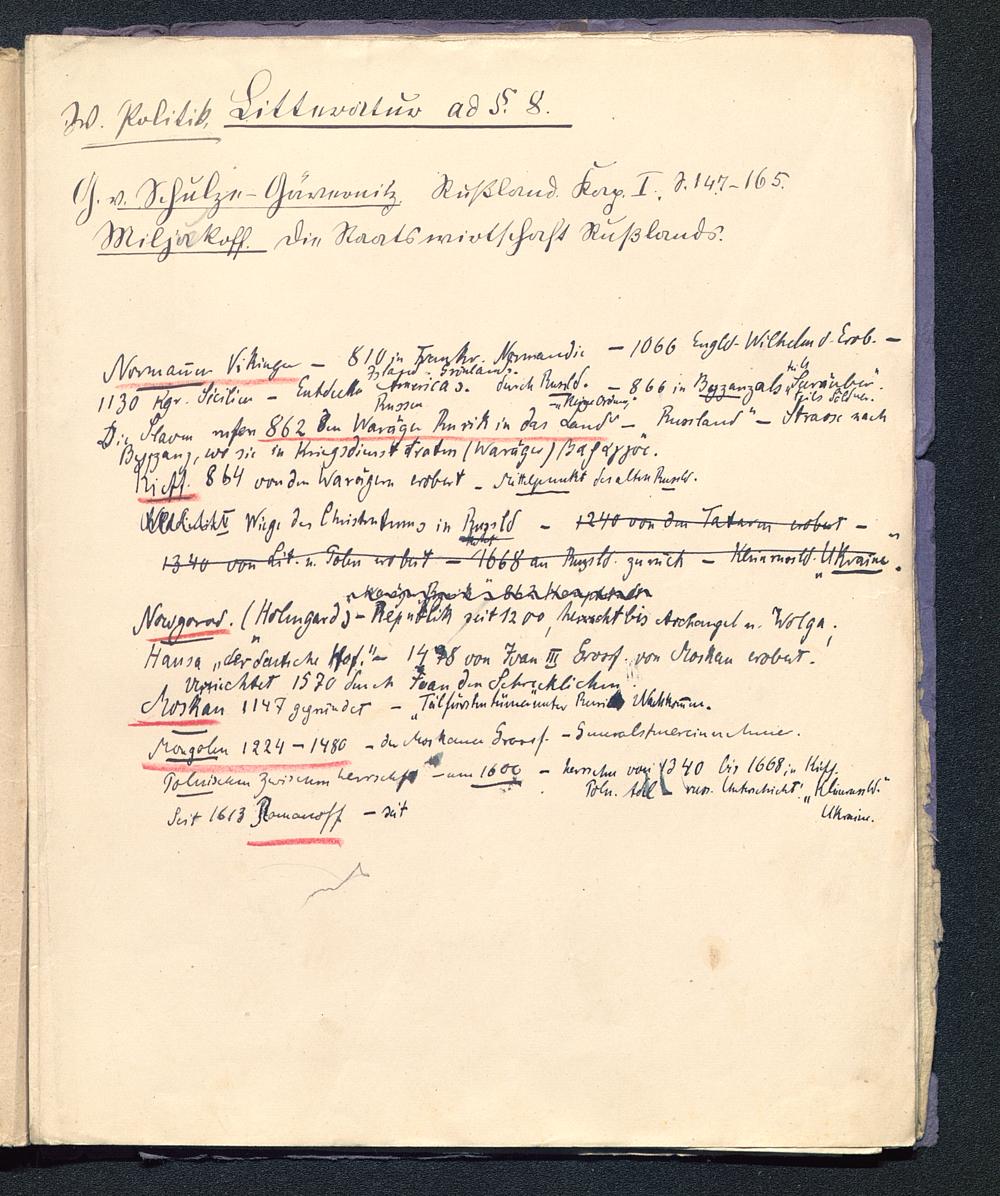 W. Politik. Litteratur ad §. 8.
G. v. Schulze-Gävernitz. Rußland. Kap. I. S. 147-165.
Miljukoff. Die Staatswirtschaft Rußlands.
Normannen Vikinger – 810 in Frankr. Normandie – 1066 Engld. Wilhelm d. Erob. –
Island. Grönland. teils
1130 Kgr. Sicilien – Entdecker Americas. durch Russld. – 866 in Byzanz als „Seeräuber".
Russen „Keine Ordnung" teils Söldner.
Die Slaven rufen 862 den Waräger Rurik in das Land – „Russland" – Strasse nach
Byzanz, wo sie in Kriegsdienst traten (Waräger) Βαραγγοι.
Kieff. 864 von den Warägern erobert – Mittelpunkt des alten Russld.
Wiege des Christentums in Russld – 1240 von den Tataren erobert –
1340 von Lit. u. Polen erobert – 1668 an Russld. zurück – Kleinrussld. „Ukraine".
Nowgorod. (Holmgard) – Republik seit 1200, herrscht bis Archangel u. Wolga.
Hansa „der deutsche Hof." – 1478 von Ivan III Grossf. von Moskau erobert.
vernichtet 1570 durch Ivan den Schrecklichen
Moskau 1147 gegründet – „Teilfürstentümer" unter Ruriks Nachkommen.
Mongolen 1224 – 1480 – der Moskauer Grossf. – Generalsteuereinnehmer.
Polnischen Zwischenherrschaft – um 1600 – herrschen von 1340 bis 1668 in Kieff.
Poln. Adel russ. Unterschicht. „Kleinrussld."
Seit 1613 Romanoff – seit Ukraine.